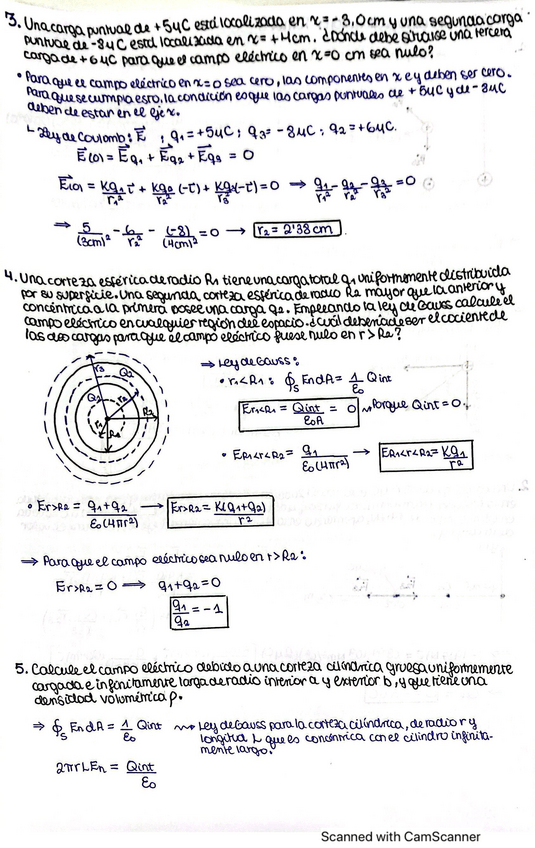 3. Una carga puntual de +5μC está localizada en x=-3,0cm y una segunda carga
puntual de -8μC está localizada en x=+4cm. ¿Dónde debe situarse una tercera
carga de +6μC para que el campo eléctrico en x=0 cm sea nulo?
• Para que el campo eléctrico en x=0 sea cero, las componentes en x e y deben ser cero.
Para que se cumpla esto, la condición es que las cargas puntuales de +5μC y de -8μC
deben de estar en el eje x.
Ley de Coulomb: E⃗ ; q1=+5μC ; q3=-8μC ; q2=+6μC.
E⃗(0) = E⃗q1 + E⃗q2 + E⃗q3 = 0
E⃗(0) = Kq1/r1² i⃗ + Kq2/r2² (-i⃗) + Kq3/r3² (-i⃗) = 0 → q1/r1² - q2/r2² - q3/r3² = 0
⇒ 5/(3cm)² - 6/r2² - (-8)/(4cm)² = 0 → r2 = 2'38cm
4. Una corteza esférica de radio R1 tiene una carga total q1 uniformemente distribuida
por su superficie. Una segunda corteza esférica de radio R2 mayor que la anterior y
concéntrica a la primera posee una carga q2. Empleando la ley de Gauss calcule el
campo eléctrico en cualquier región del espacio. ¿Cuál debería de ser el cociente de
las dos cargas para que el campo eléctrico fuese nulo en r>R2?
r3 Q2
Q1 r2 R2
r1 R1
⇒ Ley de Gauss:
• r1<R1: ∮s EndA = 1/ε0 Qint
Er1<R1 = Qint/ε0A = 0 ⇝ Porque Qint=0.
• ER1<r<R2 = q1/ε0(4πr²) → ER1<r<R2 = Kq1/r²
• Er>R2 = q1+q2/ε0(4πr²) → Er>R2 = K(q1+q2)/r²
⇒ Para que el campo eléctrico sea nulo en r>R2:
Er>R2=0 ⟹ q1+q2=0
q1/q2 = -1
5. Calcule el campo eléctrico debido a una corteza cilíndrica gruesa uniformemente
cargada e infinitamente larga de radio interior a y exterior b, y que tiene una
densidad volumétrica ρ.
⇒ ∮s EndA = 1/ε0 Qint ⇝ Ley de Gauss para la corteza cilíndrica, de radio r y
longitud L que es concéntrica con el cilindro infinita-
mente largo.
2πrLEn = Qint/ε0
Scanned with CamScanner